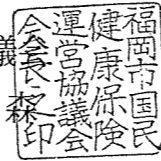 福岡市国民
健康保険
運営協議会
会長之印
議
森